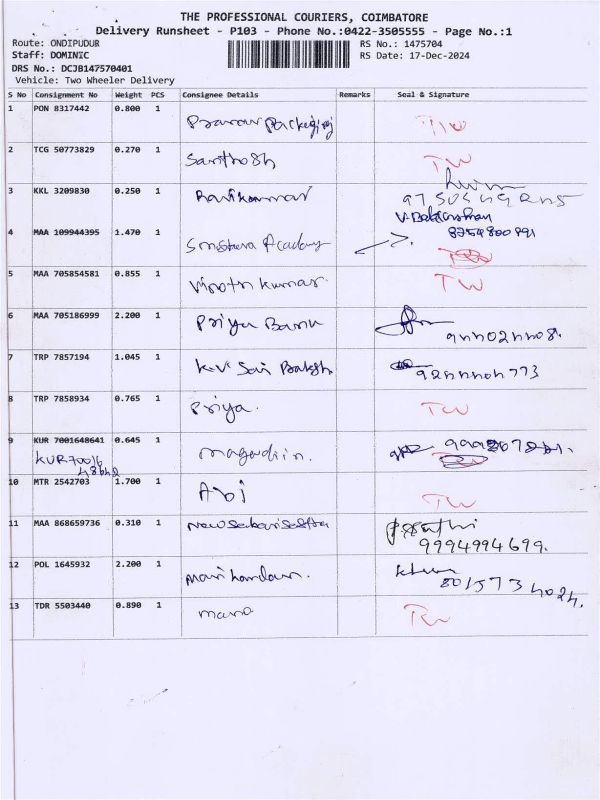 THE PROFESSIONAL COURIERS, COIMBATORE
Delivery Runsheet - P103 - Phone No.:0422-3505555 - Page No.:1
Route: ONDIPUDUR
RS No.: 1475704
Staff: DOMINIC
RS Date: 17-Dec-2024
DRS No.: DCJB147570401
Vehicle: Two Wheeler Delivery
S No Consignment No Weight PCS Consignee Details Remarks Seal & Signature
1 PON 8317442 0.800 1 TW
2 TCG 50773829 0.270 1 Santhosh TW
3 KKL 3209830 0.250 1 Ravikumar
4 MAA 109944395 1.470 1 Academy
8254800991
5 MAA 705854581 0.855 1 Vinoth Kumar. TW
6 MAA 705186999 2.200 1 Priya Banu
7 TRP 7857194 1.045 1 K.V Sai
8 TRP 7858934 0.765 1 Priya. TW
9 KUR 7001648641 0.645 1
KUR70016
48642
10 MTR 2542703 1.700 1 Abi TW
11 MAA 868659736 0.310 1
9994994699.
12 POL 1645932 2.200 1
8015734024.
13 TDR 5503440 0.890 1 mano TW